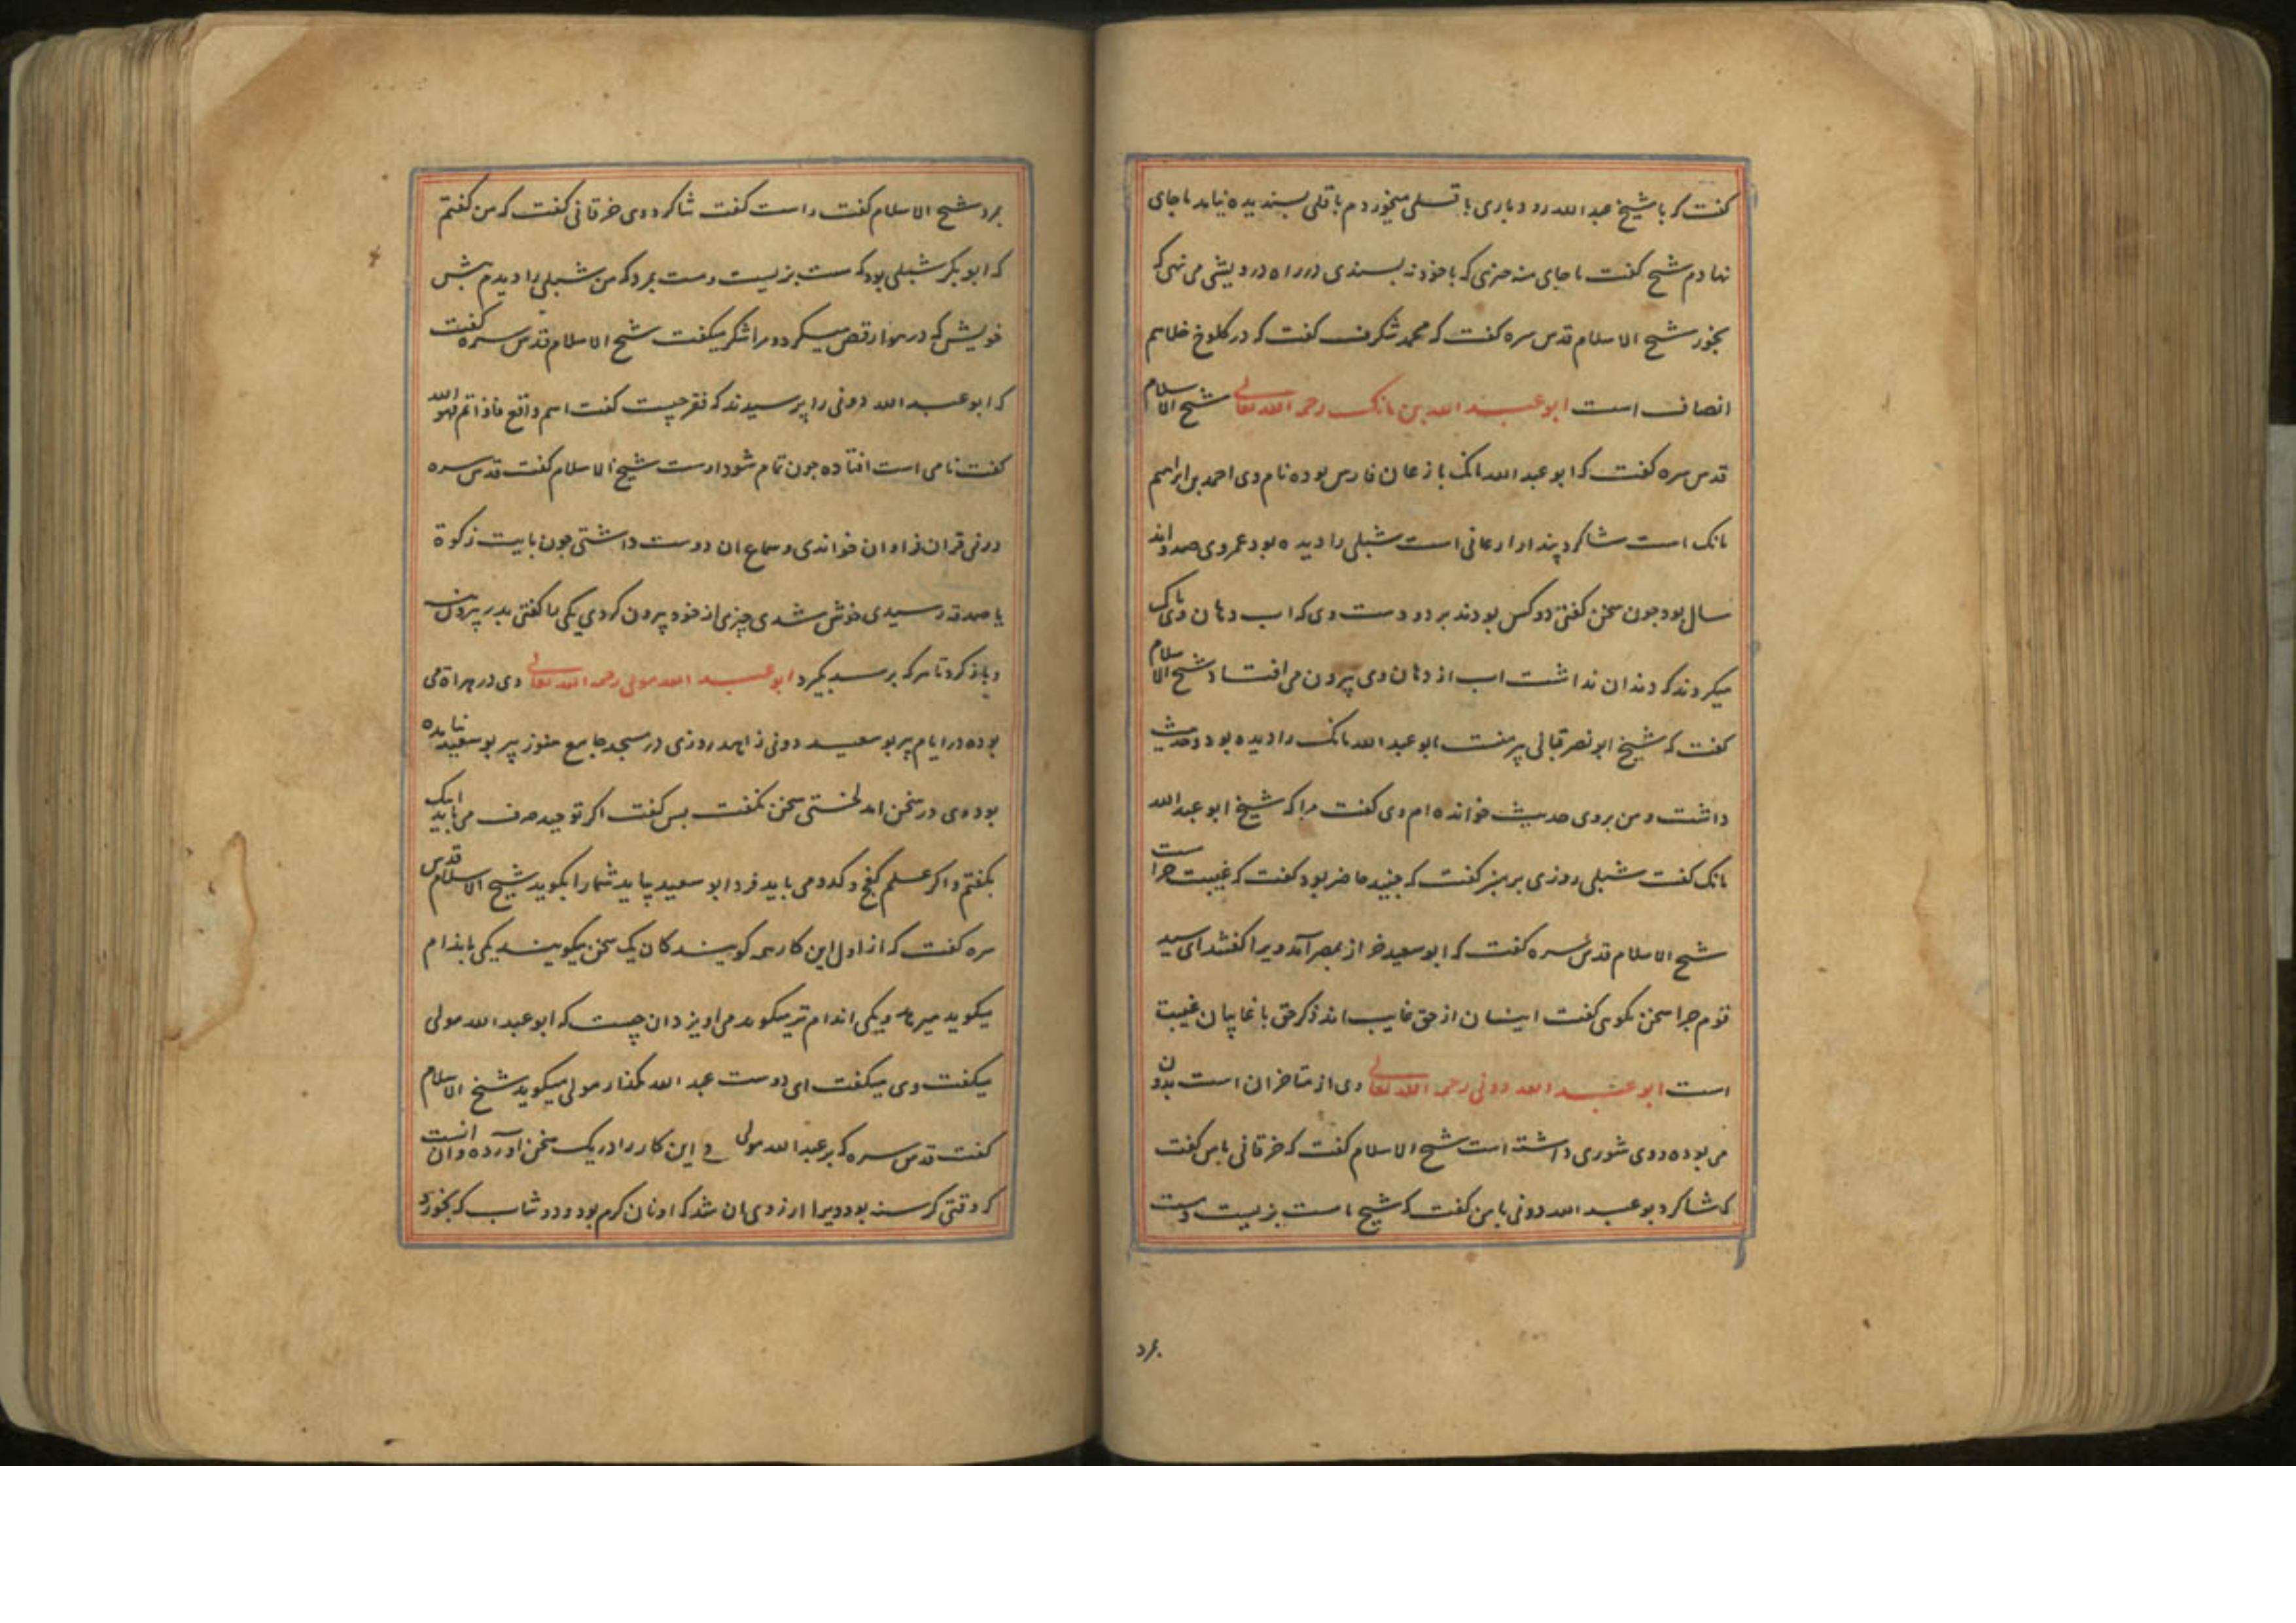 گفت که با شیخ عبد الله رودباری با قلی میخوردم باقلی پسندیده نیامد با جای
نهادم شیخ گفت با جای منه چیزی که با خود نه پسندی در راه درویشی می نهی که
بخور شیخ الاسلام قدس سره گفت که محمد شگرف گفت که در کلوخ خلا هم
انصاف است ابو عبد الله بن مانک رحمه الله تعالی شیخ الاسلام
قدس سره گفت که ابو عبد الله مانک بارغان فارس بوده نام وی احمد بن ابراهیم
مانک است شاگرد پندار ارغانی است شبلی را دیده بود عمر وی صد و اند
سال بود چون سخن گفتی دو کس بودند بر دو دست وی که اب دهان وی پاک
میکردند که دندان نداشت اب از دهان وی بیرون می افتاد شیخ الاسلام
گفت که شیخ ابو نصر قبانی پیر منست ابو عبد الله مانک را دیده بود و حدیث
داشت و من بر وی حدیث خوانده ام وی گفت مرا که شیخ ابو عبد الله
مانک گفت شبلی روزی بر منبر گفت که جنید حاضر بود گفت که غیبت حرامست
شیخ الاسلام قدس سره گفت که ابو سعید خراز بمصر آمد ویرا گفتند ای سید
قوم چرا سخن نگوئی گفت اینان از حق غایب اند ذکر حق با غایبان غیبت
است ابو عبد الله دونی رحمه الله تعالی وی از متاخران است بدون
می بوده و وی شوری داشته است شیخ الاسلام گفت که خرقانی با من گفت
که شاگرد بو عبد الله دونی با من گفت که شیخ ما مست بزیست و مست
بمرد
بمرد شیخ الاسلام گفت راست گفت شاگرد وی خرقانی گفت که من گفتم
که ابو بکر شبلی بود که مست بزیست و مست بمرد که من شبلی را دیدم پیش
خویش که در هوا رقص میکرد و مرا شکر میگفت شیخ الاسلام قدس سره گفت
که ابو عبد الله دونی را پرسیدند که فقر چیست گفت اسم واقع فاذا تم فهو الله
گفت نامی است افتاده چون تمام شود اوست شیخ الاسلام گفت قدس سره
دونی قران فراوان خواندی و سماع ان دوست داشتی چون بایت زکوة
یا صدقه رسیدی خوش شدی چیزی از خود بیرون کردی یکی را گفتی بدر بیرون نه
و باز کرد تا هر که برسد بگیرد ابو عبد الله مولی رحمه الله تعالی وی در هراة می
بوده در ایام پیر بو سعید دونی زاهد روزی در مسجد جامع هنوز پیر بو سعید نیامده
بود وی در سخن امد لختی سخن بگفت پس گفت اگر توحید صرف می باید اینک
بگفتم و اگر علم گفج و کدو می باید فردا بو سعید بیاید شما را بگوید شیخ الاسلام قدس
سره گفت که از اول این کار همه گویندکان یک سخن میگویند یکی باندام
میگوید و یکی اندام تر میگوید می اویز دان چیست که ابو عبد الله مولی
میگفت وی میگفت ای دوست عبد الله مگذار مولی میگوید شیخ الاسلام
گفت قدس سره که بر عبد الله مولی این کار را در یک سخن آورده و ان انست
که وقتی گرسنه بود ویرا ارزوی ان شد که او نان گرم بود و دوشاب که بخورد